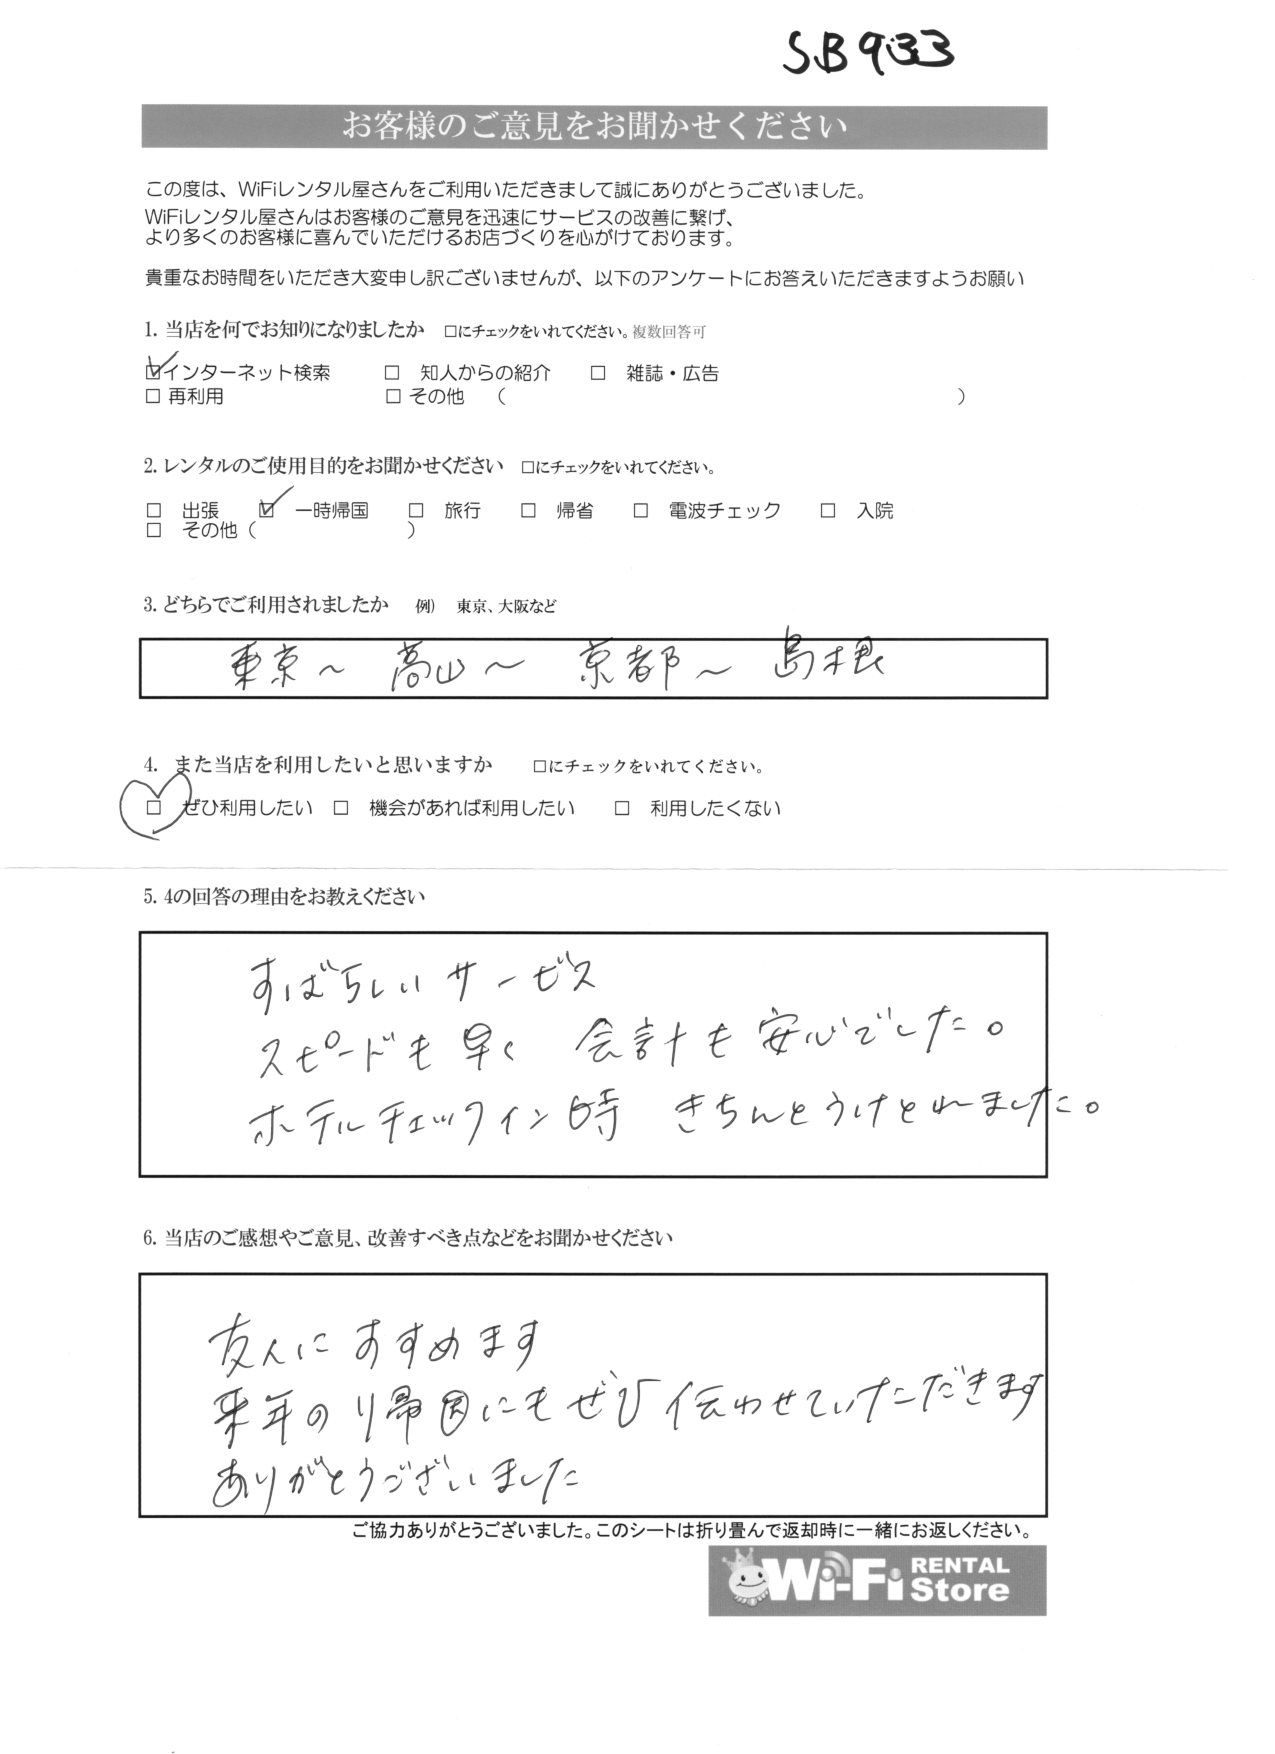 SB933
お客様のご意見をお聞かせください
この度は、WiFiレンタル屋さんをご利用いただきまして誠にありがとうございました。
WiFiレンタル屋さんはお客様のご意見を迅速にサービスの改善に繋げ、
より多くのお客様に喜んでいただけるお店づくりを心がけております。
貴重なお時間をいただき大変申し訳ございませんが、以下のアンケートにお答えいただきますようお願い
1. 当店を何でお知りになりましたか □にチェックをいれてください。複数回答可
☑インターネット検索 □ 知人からの紹介 □ 雑誌・広告
□ 再利用 □ その他 ( )
2. レンタルのご使用目的をお聞かせください □にチェックをいれてください。
□ 出張 ☑ 一時帰国 □ 旅行 □ 帰省 □ 電波チェック □ 入院
□ その他 ( )
3. どちらでご利用されましたか 例) 東京、大阪など
東京〜 高山〜 京都〜 島根
4. また当店を利用したいと思いますか □にチェックをいれてください。
☑ ぜひ利用したい □ 機会があれば利用したい □ 利用したくない
5. 4の回答の理由をお教えください
すばらしいサービス
スピードも早く 会計も安心でした。
ホテルチェックイン時 きちんとうけとれました。
6. 当店のご感想やご意見、改善すべき点などをお聞かせください
友人にすすめます
来年の帰国にもぜひ伝わせていただきます
ありがとうございました
ご協力ありがとうございました。このシートは折り畳んで返却時に一緒にお返しください。
Wi-Fi RENTAL Store